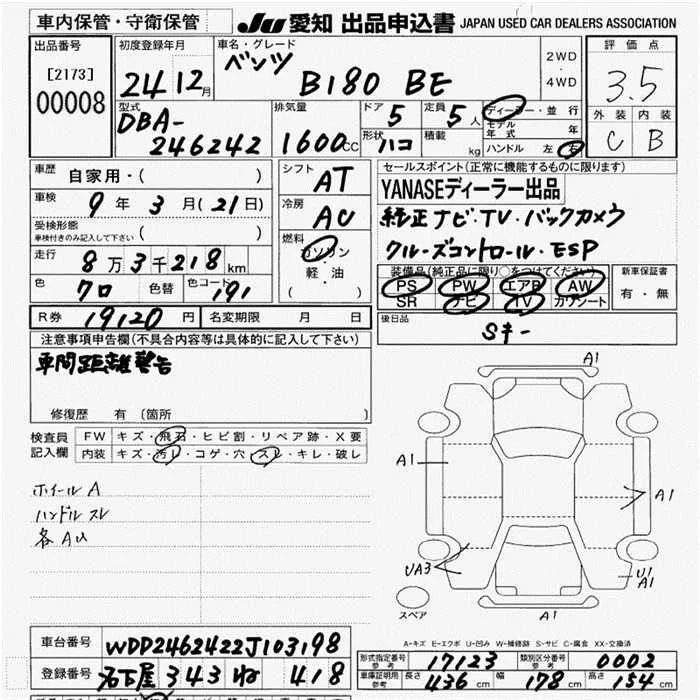 車内保管・守衛保管
JU 愛知 出品申込書 JAPAN USED CAR DEALERS ASSOCIATION
出品番号 [2173] 00008
初度登録年月 24 12月
車名・グレード ベンツ B180 BE
2WD・4WD
評価点 3.5
外装 C 内装 B
型式 DBA-246242
排気量 1600cc
ドア 5 定員 5人
形状 ハコ 積載 kg
ディーラー・並行
モデル年式 年
ハンドル 左 右
車歴 自家用・( )
車検 9年 3月(21日)
受検形態 ( )
車検付きのみ記入して下さい
走行 8万3千218km
色 クロ 色替 色コード 191
シフト AT
冷房 AC
燃料 ガソリン・軽・油 ( )
セールスポイント(正常に機能するものに限ります)
YANASEディーラー出品
純正ナビ・TV・バックカメラ
クルーズコントロール・ESP
装備品(純正品に限り○をつけてください)
PS PW エアB AW
SR ナビ TV カワシート
新車保証書 有・無
R券 19120円 名変期限 月 日
後日品 Sキー
注意事項申告欄(不具合内容等は具体的に記入して下さい)
車間距離警告
修復歴 有(箇所 )
検査員記入欄
FW キズ・飛石・ヒビ割・リペア跡・X要
内装 キズ・汚レ・コゲ・穴・スレ・キレ・破レ
ホイールA
ハンドルスレ
各AU
A1
A1
A1
UA3
U1
A1
A1
スペア
A-キズ E-エクボ U-凹み W-補修跡 S-サビ C-腐食 XX-交換済
車台番号 WDD2462422J103198
登録番号 名古屋 343 ね 418
形式指定番号 参考 17123 類別区分番号 参考 0002
車庫証明用 参考 長さ 436cm 幅 178cm 高さ 154cm